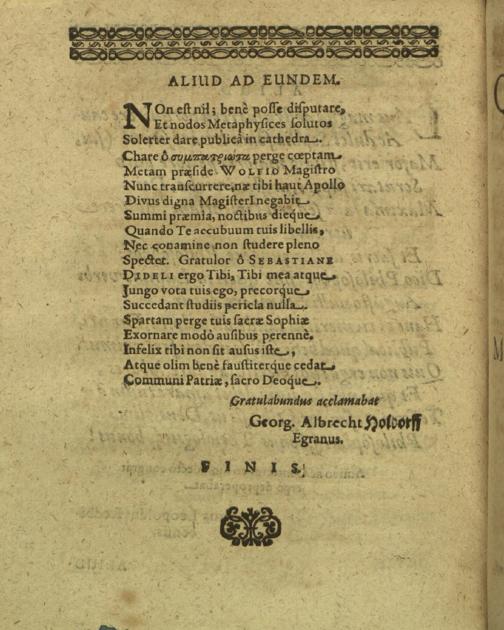 ALIUD AD EUNDEM.
NOn est nil; benè posse disputare,
Et nodos Metaphysices solutos
Solerter dare publicâ in cathedra.
Chare ô συμπατριῶτα perge cœptam
Metam præside WOLFIO Magistro
Nunc transcurrere, næ tibi haut Apollo
Divus digna Magisterî negabit
Summi præmia, noctibus dieque
Quando Te accubuum tuis libellis,
Nec conamine non studere pleno
Spectet. Gratulor ô SEBASTIANE
DIDELI ergo Tibi, Tibi mea atque
Jungo vota tuis ego, precorque
Succedant studiis pericla nulla.
Spartam perge tuis sacræ Sophiæ
Exornare modò ausibus perennè.
Infelix tibi non sit ausus iste,
Atque olim benè faustiterque cedat
Communi Patriæ, sacro Deoque.
Gratulabundus acclamabat
Georg. Albrecht Holdorff
Egranus.
FINIS.